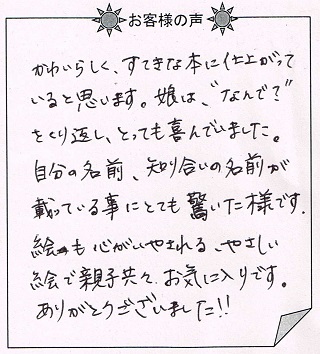 お客様の声
かわいらしく、すてきな本に仕上がって
いると思います。娘は、“なんで？”
をくり返し、とっても喜んでいました。
自分の名前、知り合いの名前が
載っている事にとても驚いた様です.
絵も心がいやされる、やさしい
絵で親子共々、お気に入りです。
ありがとうございました!!